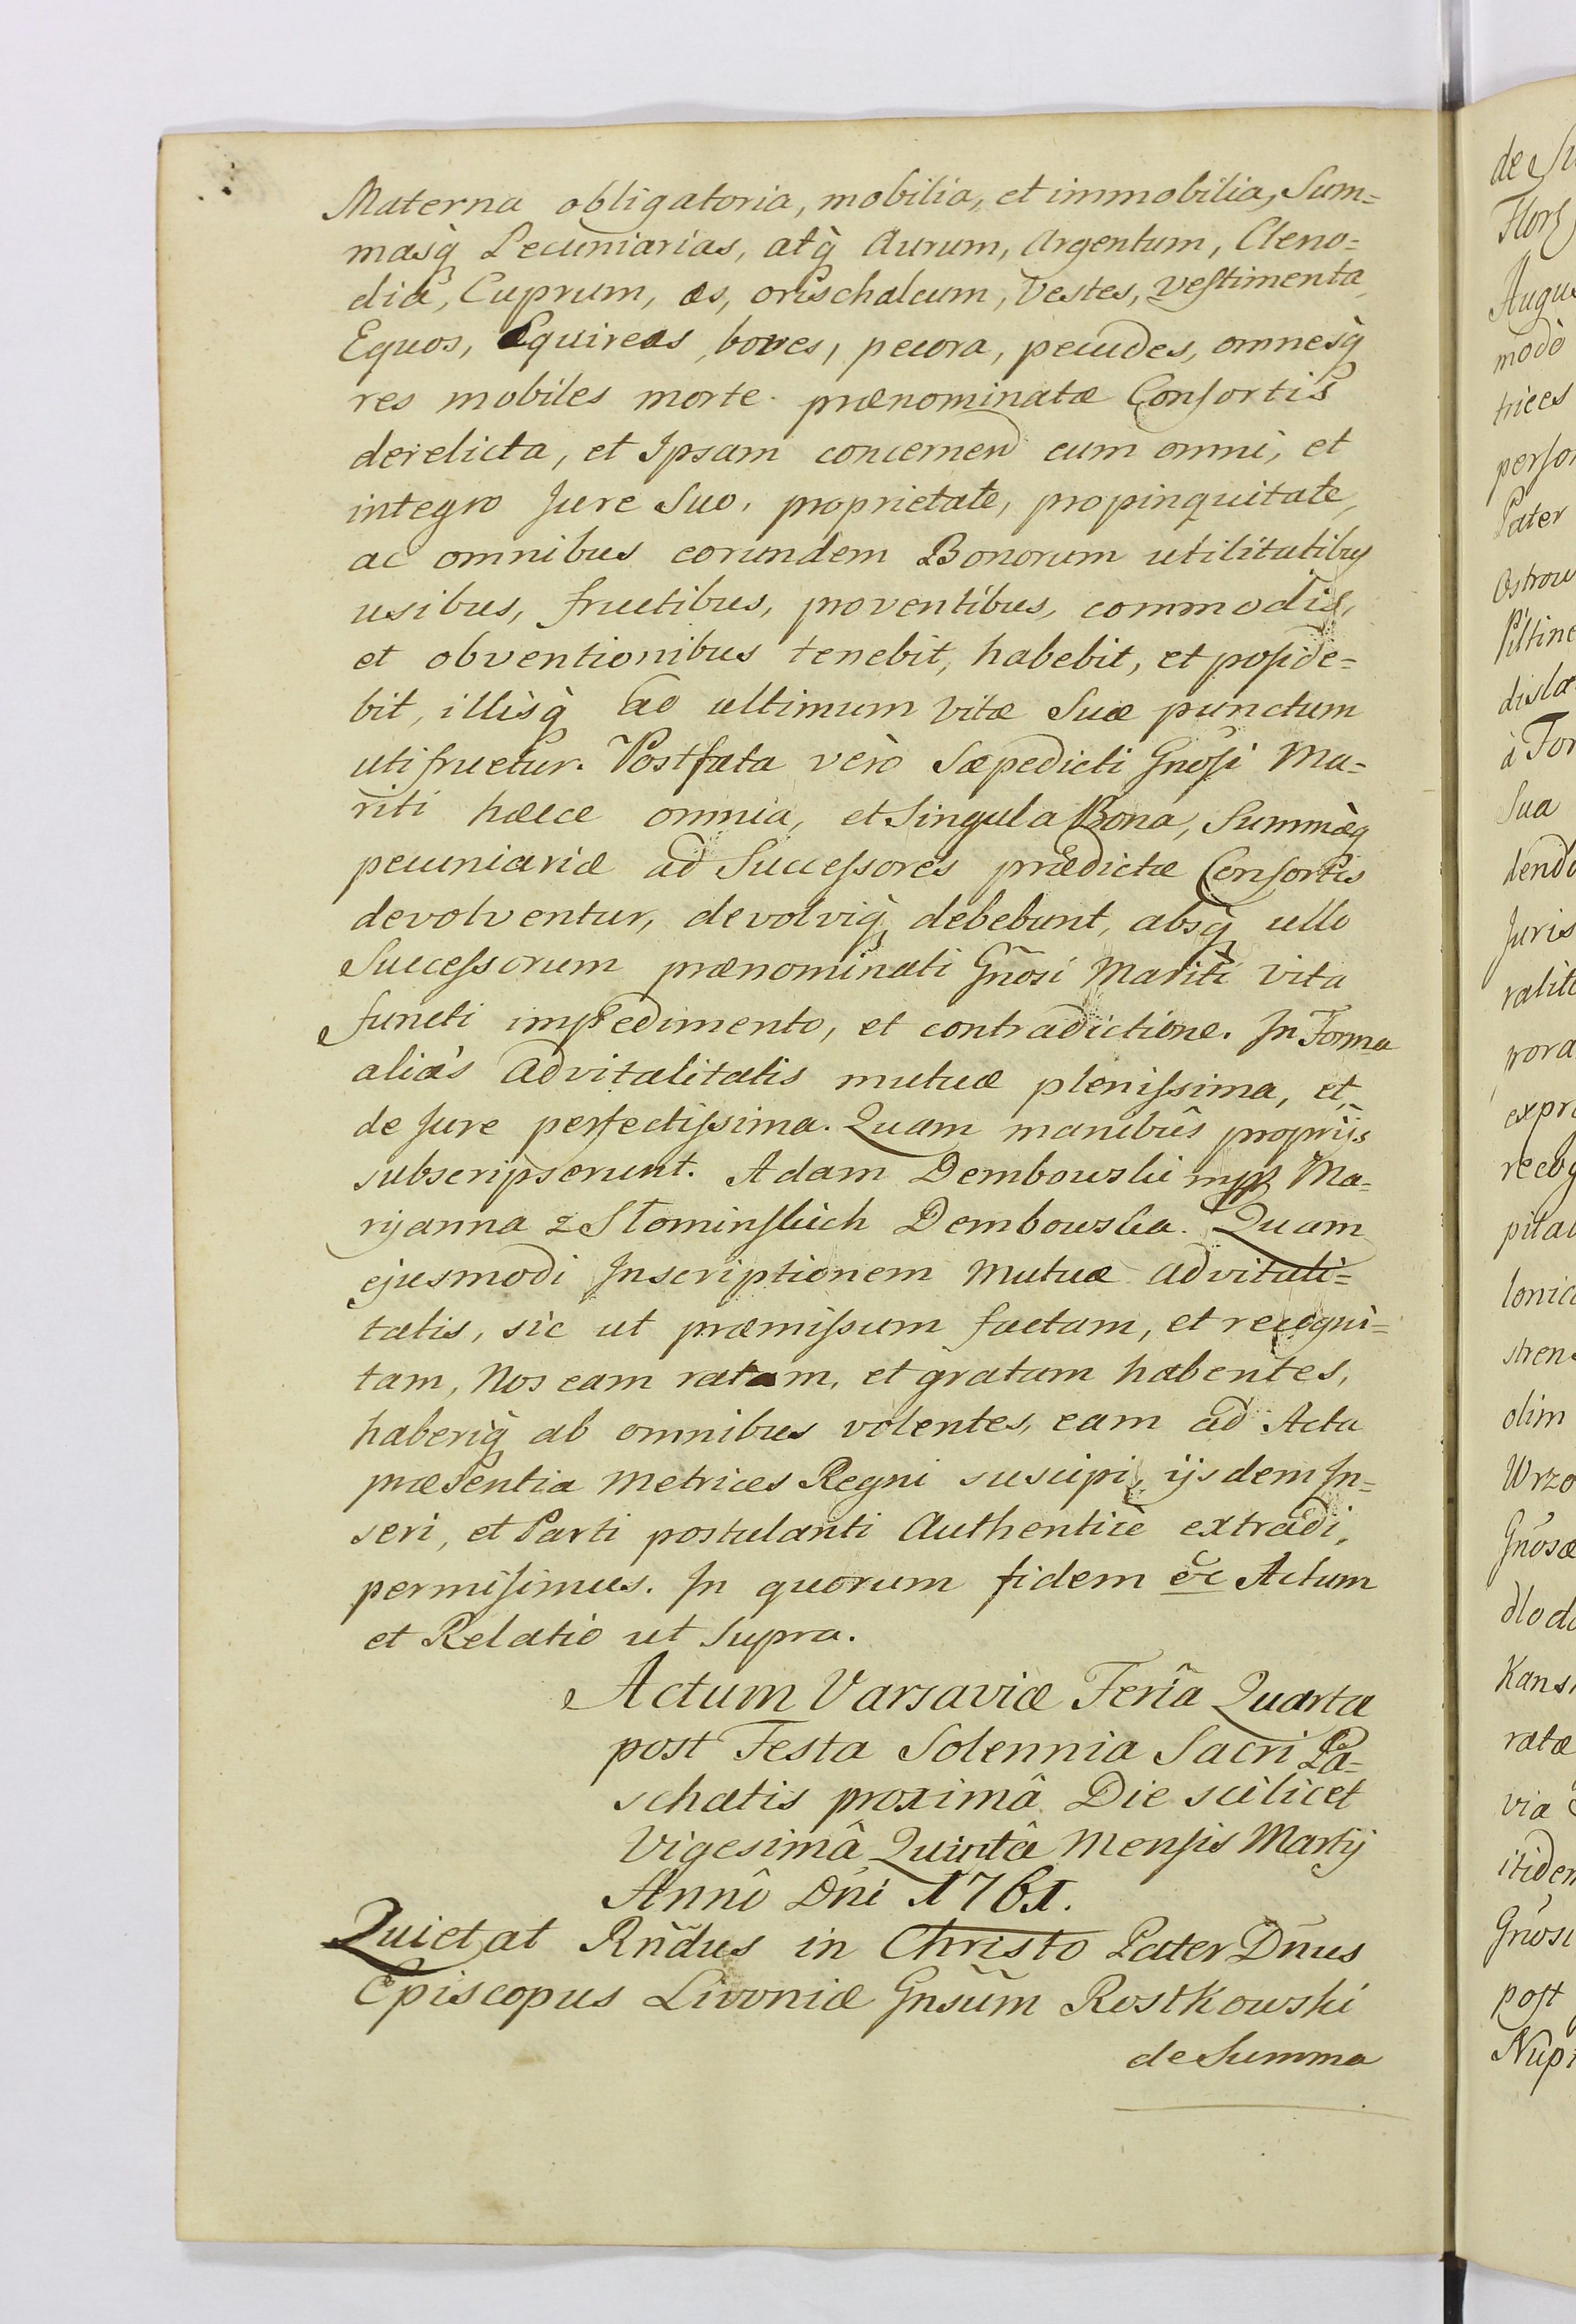 Materna obligatoria, mobilia, et immobilia, Sum=
masq̀ Pecuniarias, atq̀ Aurum, Argentum, Cleno=
dia, Cuprum, æs, orischalcum, Vestes, vestimenta,
Equos, Equireas, boves, pecora, pecudes, omnesq̀
res mobiles morte prænominatæ Consortis
derelicta, et Ipsam concernen cum omni, et
integro Jure Suo, proprietate, propinquitate,
ac omnibus eorundem Bonorum utilitatibus
usibus, fructibus, proventibus, commodis,
et obventionibus tenebit, habebit, et posside=
bit, illisq̀ ad ultimum Vitæ Suæ punctum
uti fruetur. Post fata verò Sæpedicti Gnosi Ma=
riti hæce omnia, et Singula Bona, Summæq
pecuniariæ ad Successores prædictæ Consortis
devolventur, devolviq̀, debebunt, absq̀ ullo
Successorum prænominati Gñosi Mariti vita
functi impedimento, et contradictione. In Forma
aliàs Advitalitatis mutuæ plenissima, et,
de Jure perfectissima. Quam manibûs proprijs
subscripserunt. Adam Dembowski mpp Ma=
ryanna z Słominskich Dembowska. Quam
ejusmodi Inscriptionem Mutuæ Advitali=
tatis, sic ut præmissum factam, et recogni=
tam, Nos eam ratam, et gratam habentes,
haberiq̀ ab omnibus volentes, eam ad Acta
præsentia Metrices Regni suscipi, ijsdem In=
seri, et Parti postulanti Authenticè extradi,
permisimus. In quorum fidem &c Actum
et Relatio ut Supra.
Actum Varsaviæ Feriâ Quarta
post Festa Solennia Sacri Pa=
schatis proximâ Die scilicet
Vigesimâ Quintâ Mensis Martij
Annô Dñi 1761.
Quietat Rñdus in Christo Pater Dñus
Episcopus Livoniæ Gnsũm Rostkowski
de Summa